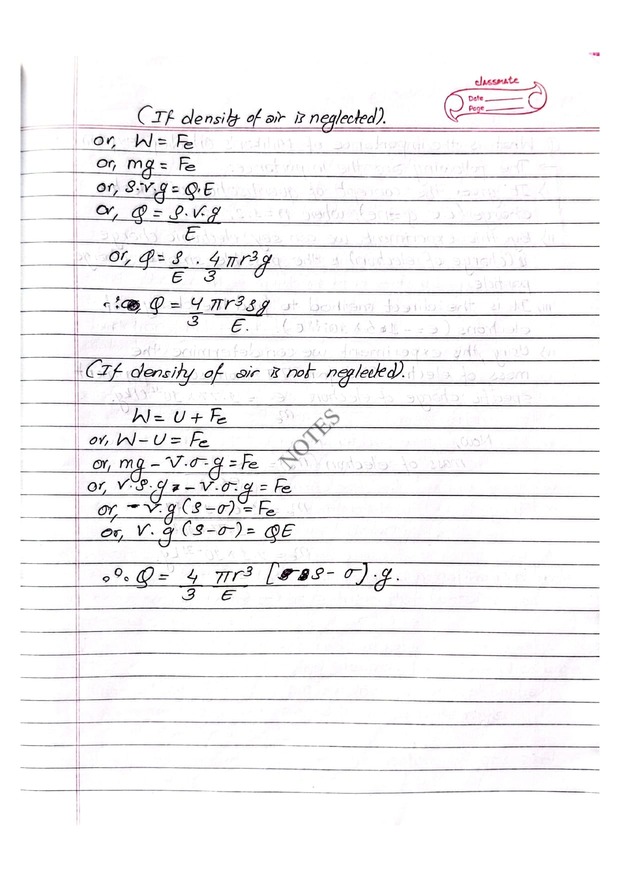 classmate
Date
Page
(If density of air is neglected).
or, W = Fe
or, mg = Fe
or, ρ.V.g = Q.E
or, Q = ρ.V.g / E
or, Q = ρ/E . 4/3 πr³g
∴ Q = 4/3 πr³ρg / E.
(If density of air is not neglected).
W = U + Fe
or, W - U = Fe
or, mg - V.σ.g = Fe
or, V.ρ.g - V.σ.g = Fe
or, V.g (ρ-σ) = Fe
or, V.g (ρ-σ) = QE
∴ Q = 4/3 πr³/E [ρ - σ).g.
NOTES